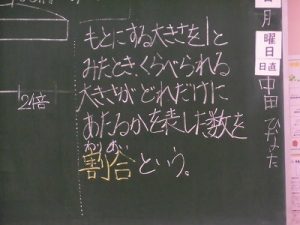 もとにする大きさを1と
みたとき、くらべられる
大きさがどれだけに
あたるかを表した数を
わりあい
割合という。
2倍
月
曜日
日直
中田 ひなた